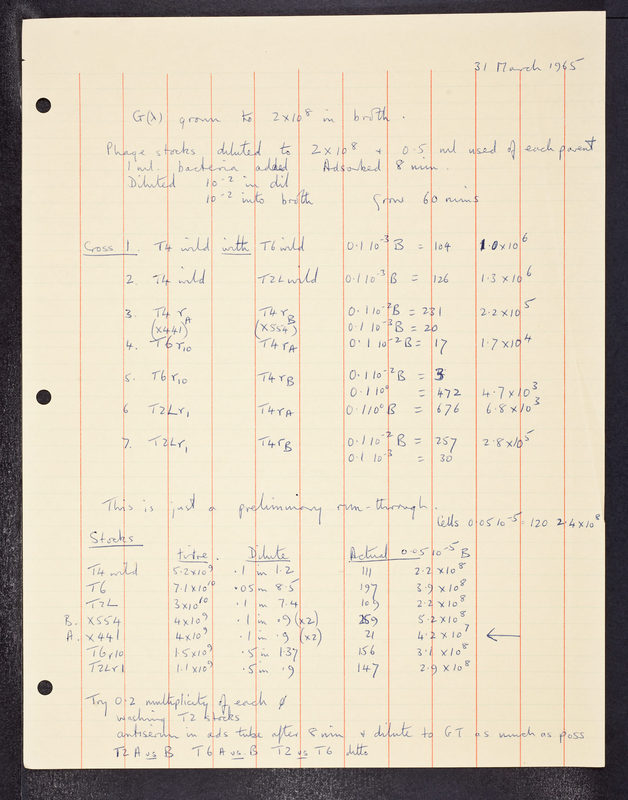 31 March 1965
G(λ) grown to 2x10⁸ in broth.
Phage stocks diluted to 2x10⁸ + 0.5 ml used of each parent
1 ml bacteria added Adsorbed 8 min.
Diluted 10⁻² in dil
10⁻² into broth Grow 60 mins
Cross 1. T4 wild with T6 wild 0.1 10⁻³ B = 104 1.0x10⁶
2. T4 wild T2L wild 0.1 10⁻³ B = 126 1.3x10⁶
3. T4 r_A T4 r_B 0.1 10⁻² B = 231 2.2x10⁵
(X441) (X554) 0.1 10⁻³ B = 20
4. T6 r₁₀ T4 r_A 0.1 10⁻² B = 17 1.7x10⁴
5. T6 r₁₀ T4 r_B 0.1 10⁻² B = 3
0.1 10⁰ = 472 4.7x10³
6 T2L r₁ T4 r_A 0.1 10⁰ B = 676 6.8x10³
7. T2L r₁ T4 r_B 0.1 10⁻² B = 257 2.8x10⁵
0.1 10⁻³ = 30
This is just a preliminary run-through.
Cells 0.05 10⁻⁵ = 120 2.4x10⁸
Stocks
titre. Dilute Actual 0.05 10⁻⁵ B
T4 wild 5.2x10⁹ .1 in 1.2 111 2.2x10⁸
T6 7.1x10¹⁰ .05 in 8.5 197 3.9x10⁸
T2L 3x10¹⁰ .1 in 7.4 109 2.2x10⁸
B. X554 4x10⁹ .1 in .9 (x2) 259 5.2x10⁸
A. X441 4x10⁹ .1 in .9 (x2) 21 4.2x10⁷ ←
T6r10 1.5x10⁹ .5 in 1.37 156 3.1x10⁸
T2Lr1 1.1x10⁹ .5 in .9 147 2.9x10⁸
Try 0.2 multiplicity of each ø
washing T2 stocks
antiserum in ads tube after 8 min + dilute to GT as much as poss
T2 A vs B T6 A vs B T2 vs T6 ditto